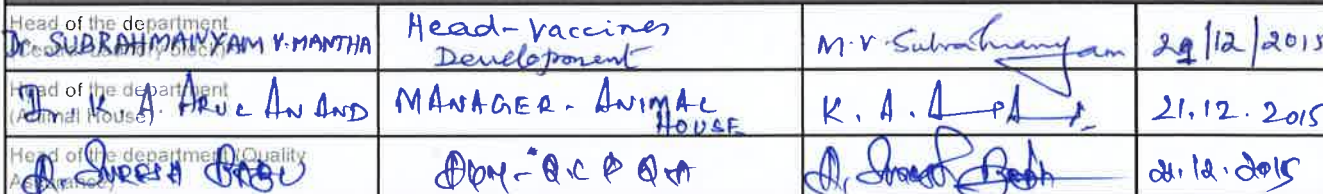 Head of the department
Dr. SUBRAHMANYAM V. MANTHA
Head - Vaccines
Development
M. V. Subrahmanyam
29/12/2015
Head of the department
(Animal House)
Dr. K. A. ARUL ANAND
MANAGER - ANIMAL
HOUSE
K. A.
21.12.2015
Head of the department (Quality
Assurance)
SURESH BABU
Q.C & QA
21.12.2015